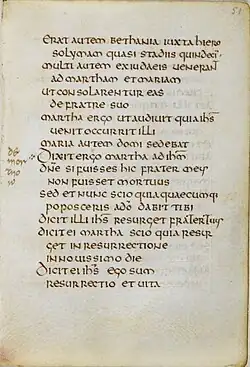 51
erat autem bethania iuxta hiero
solymam quasi stadiis quindeci
multi autem ex iudaeis venerant
ad martham et mariam
ut consolarentur eas
de fratre suo
martha ergo ut audiuit quia ihs
uenit occurrit illi
maria autem domi sedebat
Dixit ergo martha ad ihm
dne si fuisses hic frater meus
non fuisset mortuus
sed et nunc scio quia quaecumq
poposceris a do dabit tibi
dicit illi ihs resurget frater tuus
dicit ei martha scio quia resur
get in resurrectione
in nouissimo die
Dicit ei ihs ego sum
resurrectio et uita
de
mor